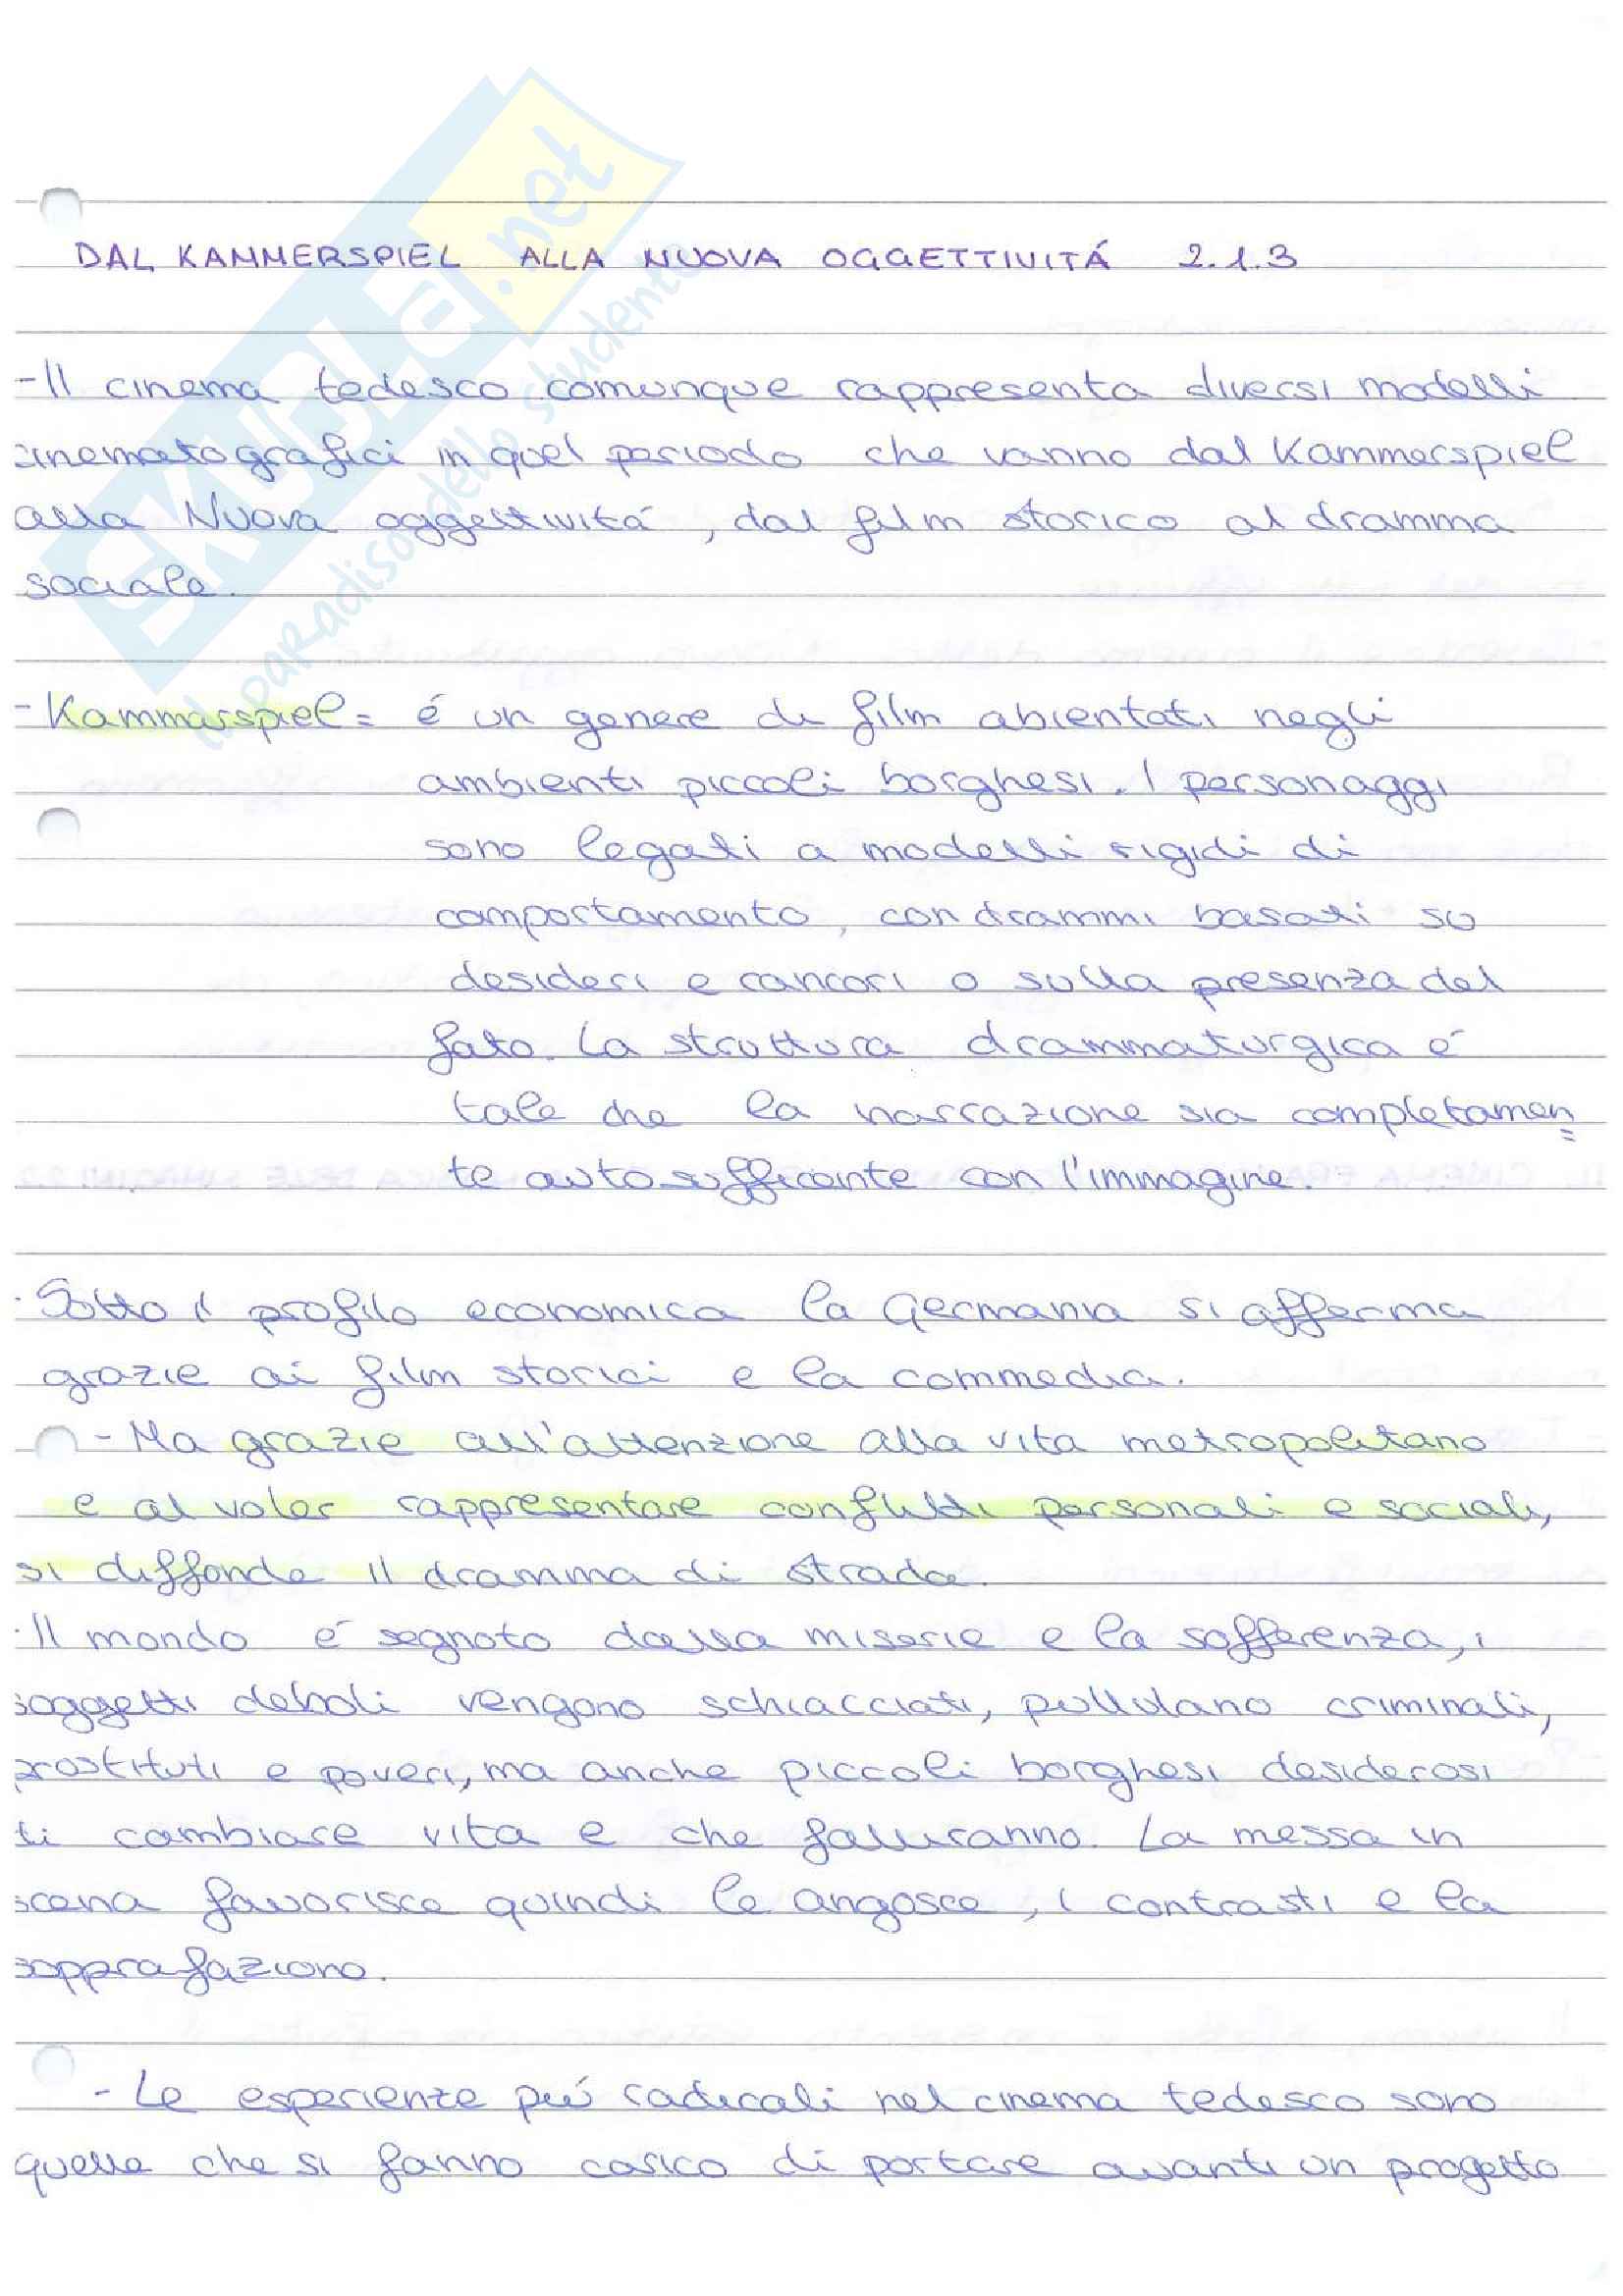 DAL KAMMERSPIEL ALLA NUOVA OGGETTIVITÁ 2.1.3
- Il cinema tedesco comunque rappresenta diversi modelli
cinematografici in quel periodo che vanno dal Kammerspiel
alla Nuova oggettivitá, dal film storico al dramma
sociale.
- Kammerspiel = é un genere di film abientati negli
ambienti piccoli borghesi. I personaggi
sono legati a modelli rigidi di
comportamento, con drammi basati su
desideri e rancori o sulla presenza del
fato. La struttura drammaturgica é
tale che la narrazione sia completamen=
te autosufficente con l'immagine.
· Sotto il profilo economica la Germania si afferma
grazie ai film storici e la commedia.
- Ma grazie all'attenzione alla vita metropolitana
e al voler rappresentare conflitti personali e sociali,
si diffonde il dramma di strada.
· Il mondo é segnato dalla miseria e la sofferenza, i
soggetti deboli vengono schiacciati, pullulano criminali,
prostituti e poveri, ma anche piccoli borghesi desiderosi
di cambiare vita e che falliranno. La messa in
scena favorisce quindi le angosce, i contrasti e la
sopprafazione.
- Le esperienze piú radicali nel cinema tedesco sono
quelle che si fanno carico di portare avanti un progetto
SKUOLA.net
il paradiso dello studente